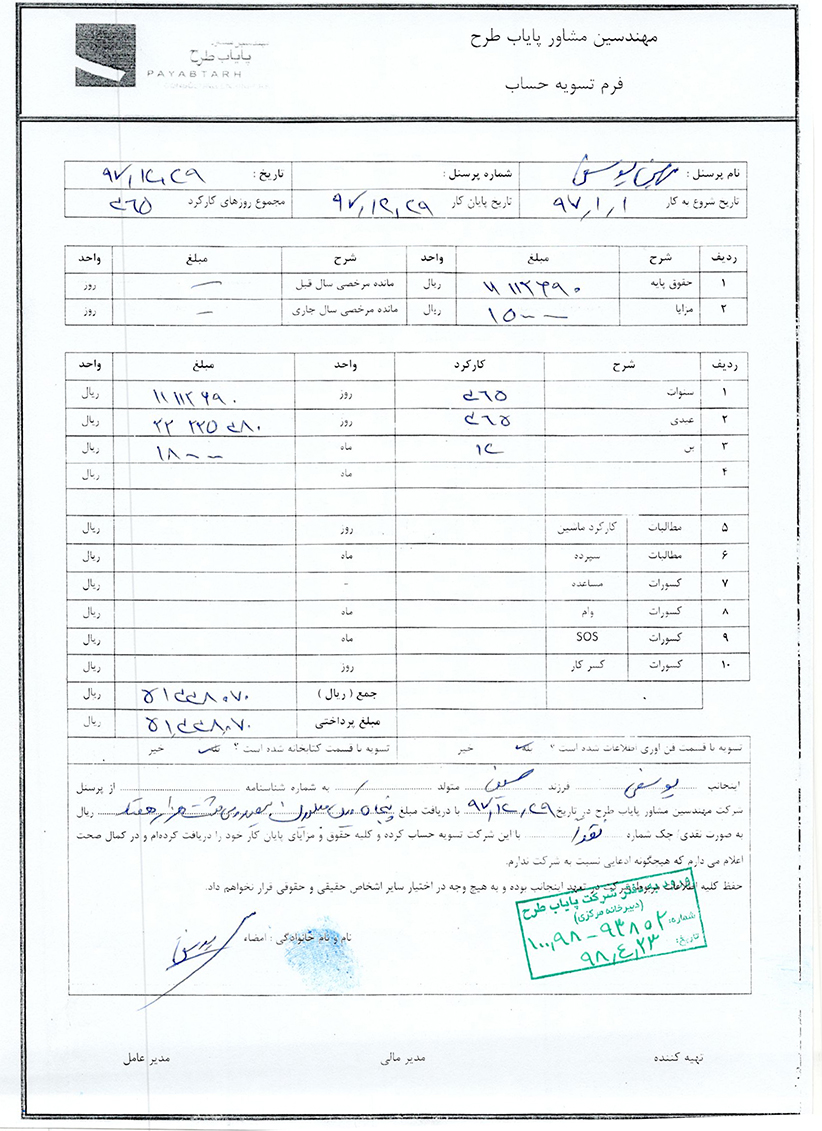 مهندسین مشاور پایاب طرح
فرم تسویه حساب
مهندسین مشاور
پایاب طرح
PAYABTARH
نام پرسنل : یوسفی شماره پرسنل : تاریخ : ۹۷,۱۲,۲۹
تاریخ شروع به کار ۹۷,۱,۱ تاریخ پایان کار ۹۷,۱۲,۲۹ مجموع روزهای کارکرد ۳۶۵
ردیف شرح مبلغ واحد شرح مبلغ واحد
۱ حقوق پایه ۱۱ ۱۱۲۶۹۰ ریال مانده مرخصی سال قبل — روز
۲ مزایا ریال مانده مرخصی سال جاری — روز
ردیف شرح کارکرد واحد مبلغ واحد
۱ سنوات ۳۶۵ روز ۱۱ ۱۱۲۶۹۰ ریال
۲ عیدی ۳۶۵ روز ۲۲ ۲۲۵۳۸۰ ریال
۳ بن ۱۲ ماه ریال
۴ ماه ریال
۵ مطالبات کارکرد ماشین روز ریال
۶ مطالبات سپرده ماه ریال
۷ کسورات مساعده - ریال
۸ کسورات وام ماه ریال
۹ کسورات SOS ماه ریال
۱۰ کسورات کسر کار روز ریال
جمع ( ریال ) ۵۱,۳۳۸,۰۷۰ ریال
مبلغ پرداختی ۵۱,۳۳۸,۰۷۰ ریال
تسویه با قسمت فن آوری اطلاعات شده است ؟ بلی خیر تسویه با قسمت کتابخانه شده است ؟ بلی خیر
اینجانب یوسفی فرزند حسین متولد / به شماره شناسنامه از پرسنل
شرکت مهندسین مشاور پایاب طرح در تاریخ ۹۷,۱۲,۲۹ با دریافت مبلغ پنجاه و یک میلیون و سیصد و سی هشت هزار هفتاد ریال
به صورت نقدی/ چک شماره نقدا با این شرکت تسویه حساب کرده و کلیه حقوق و مزایای پایان کار خود را دریافت کرده‌ام و در کمال صحت
اعلام می دارم که هیچگونه ادعایی نسبت به شرکت ندارم.
حفظ کلیه اطلاعات مربوط به شرکت در تعهد اینجانب بوده و به هیچ وجه در اختیار سایر اشخاص حقیقی و حقوقی قرار نخواهم داد.
ورود به دفتر شرکت پایاب طرح
(دبیرخانه مرکزی)
شماره: ۱۰۰,۹۸-۹۳۸۵۲
تاریخ: ۹۸,۴,۲۳
نام و نام خانوادگی : امضاء یوسفی
تهیه کننده مدیر مالی مدیر عامل